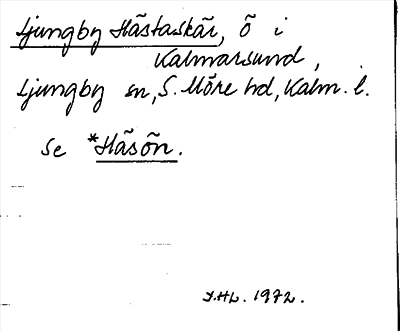 Ljungby Hästaskär, ö i
Kalmarsund,
Ljungby sn, S. Möre hd, Kalm. l.
Se *Häsön.
J.HL. 1972.